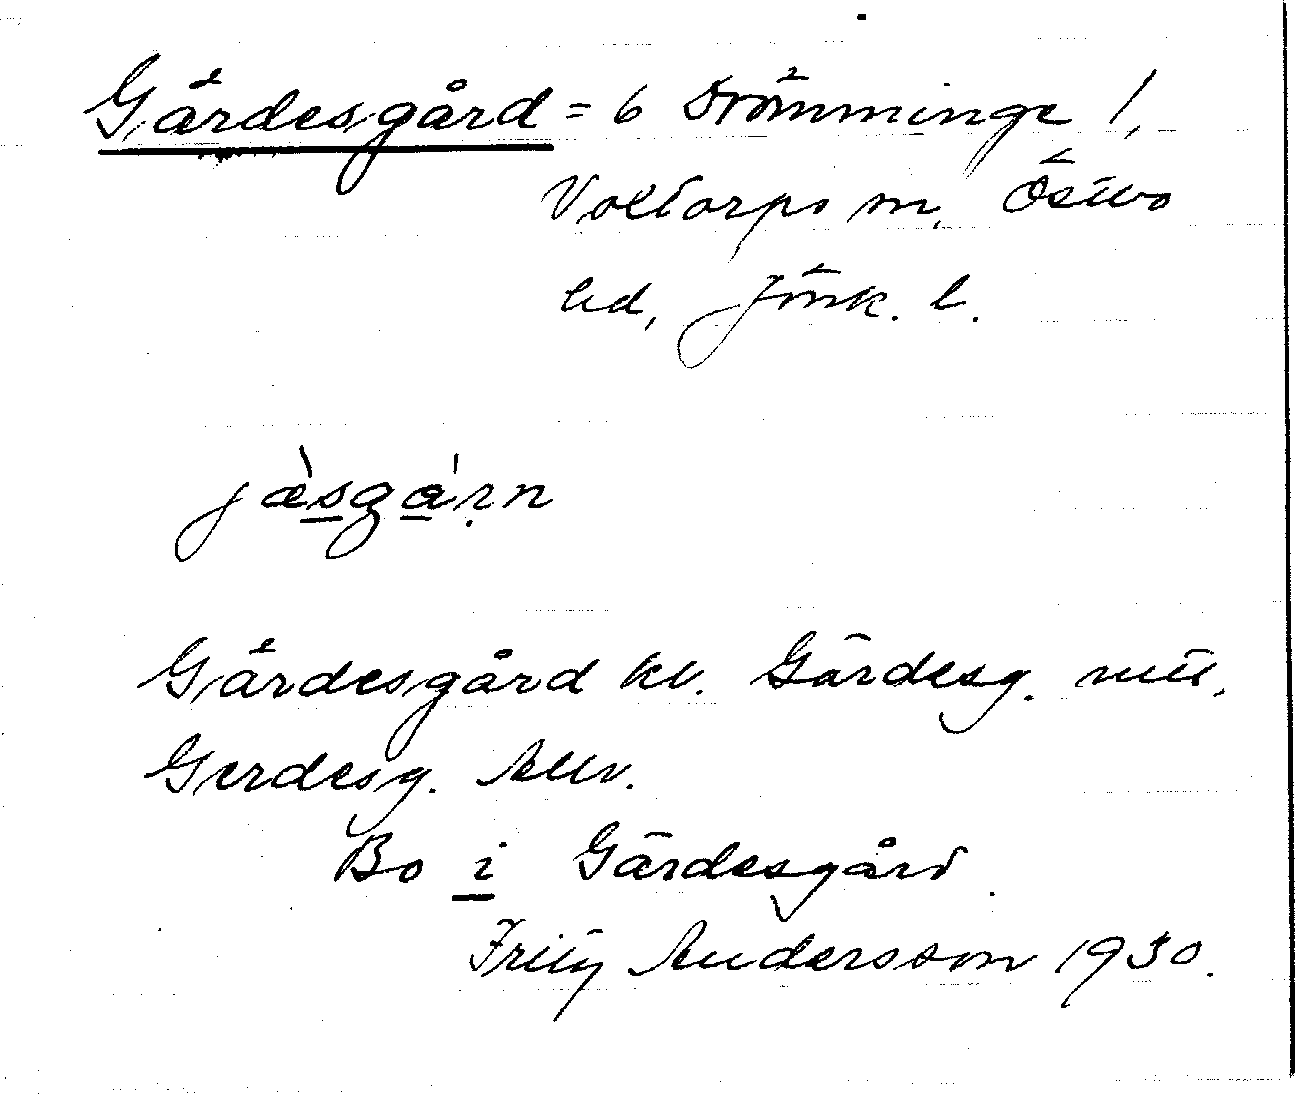 Gärdesgård = 6 Strömminge 1,
Voxtorps sn, Östbo
hd, Jönk. l.
jæ̀sgárn
Gärdesgård kv. Gärdesg.
Gerdesg.
Bo i Gärdesgård.
Fritz Andersson 1930.